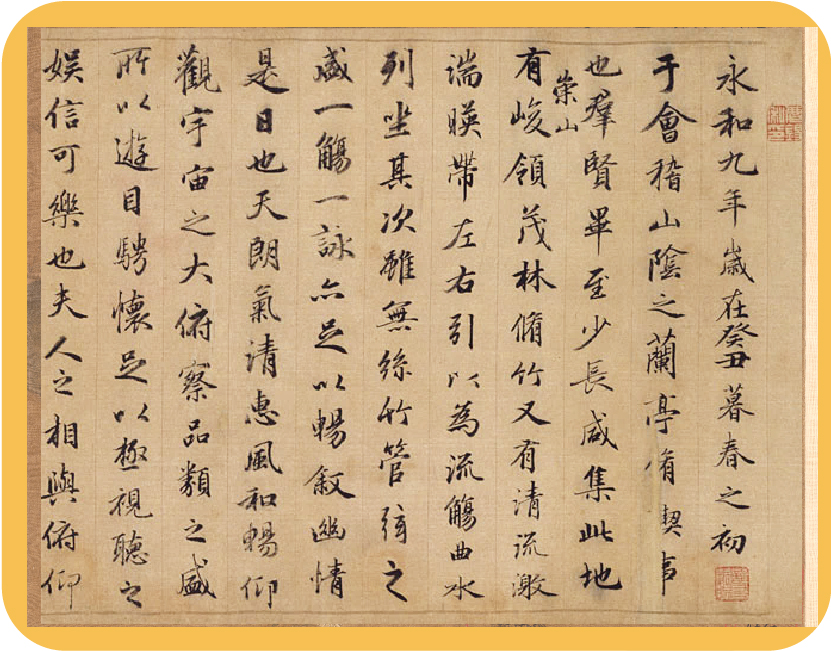 永和九年歲在癸丑暮春之初
于會稽山陰之蘭亭脩禊事
也羣賢畢至少長咸集此地
有崇山峻領茂林脩竹又有清流激
湍暎帶左右引以為流觴曲水
列坐其次雖無絲竹管弦之
盛一觴一詠亦足以暢敘幽情
是日也天朗氣清惠風和暢仰
觀宇宙之大俯察品類之盛
所以遊目騁懷足以極視聽之
娛信可樂也夫人之相與俯仰